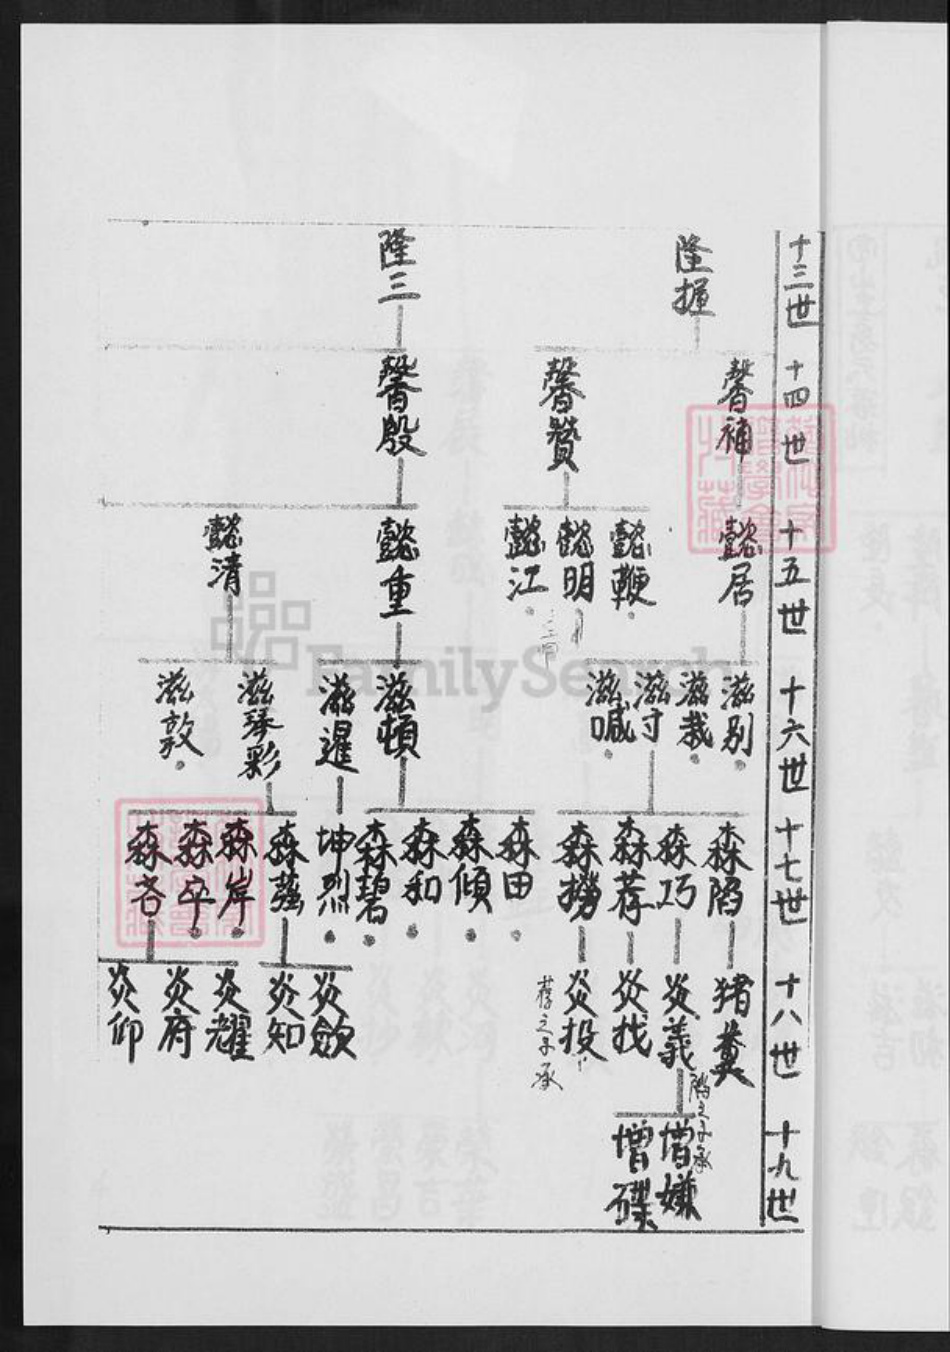 十三世
隆握
隆三
十四世
馨補
馨贊
馨殷
十五世
懿居
懿鞭
懿明
懿江
懿重
懿清
十六世
滋別
滋栽
滋寸
滋喊
滋頓
滋暹
滋琴彩
滋敦
十七世
森陷
森巧
森荐
森撈
森田
森傾
森和
森碧
坤烈
森岸
森卒
十八世
猪糞
炎義
炎找
炎投
荐之子承
炎歛
炎知
炎耀
炎府
炎仰
十九世
增嫌
增磉
FamilySearch